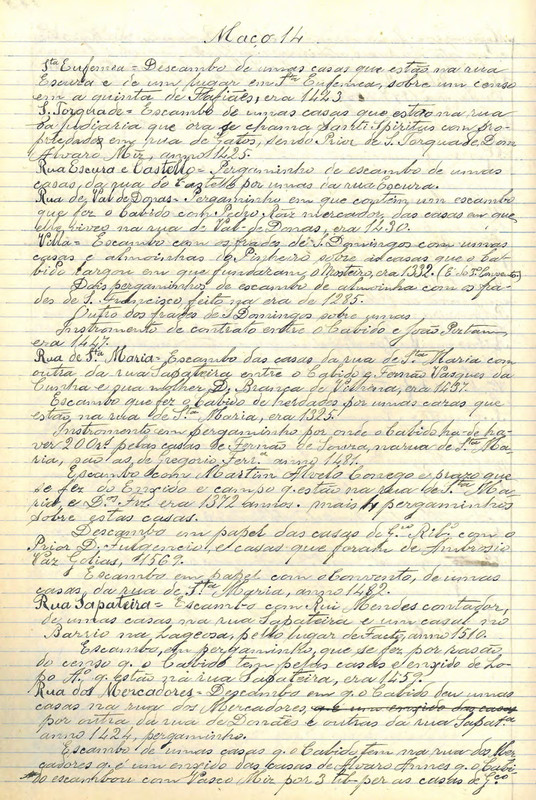 Maço 14
Sta Eufemea = Descambo de umas casas que estão na rua
Escura e de um pugar em Sta Eufemea, sobre um censo
em a quinta de Fafiães, era 1443
S. Torquade = Escambo de umas casas que estão na rua
da judiaria que ora se chama Sancti Spiritus com pro-
em rua de Gatos, sendo Prior de S. Torquade, Dom
Alvaro Miz, anno 1425.
Rua Escura e Castello = Pergaminho de escambo de umas
casas, da rua do Castello por umas da rua Escura.
Rua de Val de Donas = Pergaminho em que contém um escambo
que fez o Cabido com Pedro Roiz mercador, das casas em que
elle vives na rua de Val-de-Donas, era 1230.
Villa = Escambo com os frades de S. Domingos com umas
casas e almoinhas do Pinheiro sobre as casas que o Cab-
bido largou em que fundaram, o Mosteiro, era 1332. (E do
Dois pergaminhos de escambo de almoinha com os fra-
des de S. Francisco feito na era de 1285.
Outro dos frades de S. Domingos sobre umas
Instrumento de contrato entre o Cabido e João
era 1447.
Rua de Sta Maria = Escambo das casas da rua de Sta Maria com
outra da rua Sapateira entre o Cabido e Fernão Vasques da
Cunha e sua mulher D. Branca de Vilhena, era 1437.
Escambo que fez o Cabido de herdades por umas cazas que
estão, na rua de Sta Maria, era 1325.
Instrumento em pergaminho por onde o Cabido ha-de ha-
ver 200rs. pelas casas de Fernão de Souza, na rua de Sta Ma-
ria, são as, de Gregorio Ferra. anno 1481.
Escambo com Martim Alvelo Conego e prazo que
se fez do Engido e campo q. estão na rua de Sta Ma-
ria, e era 1372 annos. mais 4 pergaminhos
sobre estas casas.
Descambo em papel das casas de Gro. Ribo com o
Prior D. Fulgencio, e casas que foram de Ambrosio
Vaz Golias, 1562.
Escambo em papel com o Convento, de umas
casas, da rua de Sta Maria, anno 1482.
Rua Sapateira = Escambo com Rui Mendes contador,
de umas casas na rua Sapateira e um casal no
Barrio na Lageosa, pello lugar de Facto, anno 1510.
Escambo, em pergaminho, que se fez por rasão,
do censo q. o Cabido tem pelas casas e engido de Lo-
po Ao. q. estão na rua Sapateira, era 1459.
Rua dos Mercadores = Descambo em q. o Cabido deu umas
casas na rua dos Mercadores, e é um engido das casas
por outra, da rua de Donães e outras da rua Sapata
anno 1424, pergaminho.
Escambo de umas casas q. o Cabido, tem na rua dos Mer-
cadores q. é um engido das casas de Alvaro Annes q. o Cabi-
do escambou com Vasco Miz por 3 lib. per as casas de Gco